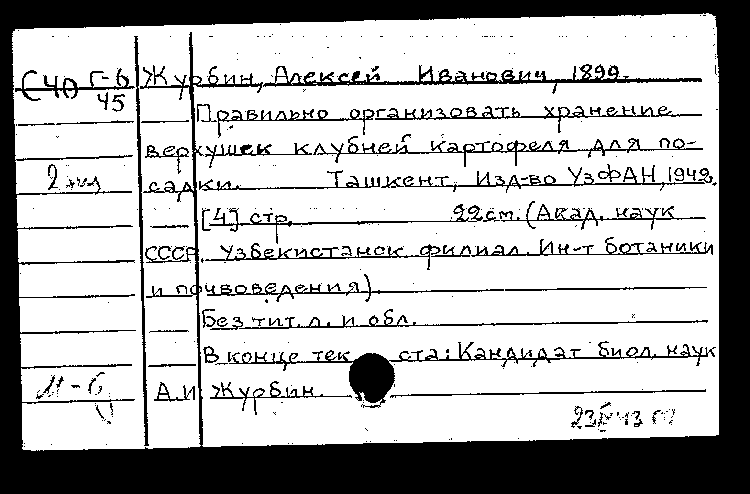 С40 Г-6 Журбин, Алексей Иванович, 1899.
45
Правильно организовать хранение
верхушек клубней картофеля для по-
2 экз садки. Ташкент, Изд-во УзФАН, 1942.
[4] стр. 22 см. (Акад. наук
СССР. Узбекистанск. филиал. Ин-т ботаники
и почвоведения).
Без тит. л. и обл.
В конце текста: Кандидат биол. наук
А.И. Журбин.